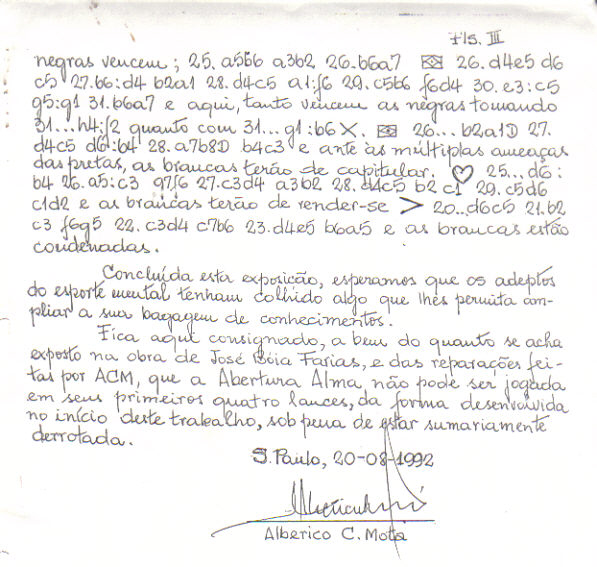 Fls. III
negras vencem; 25. a5b6 a3b2 26. b6a7 ✉ 26. d4e5 d6
c5 27. b6:d4 b2a1 28. d4c5 a1:f6 29. c5b6 f6d4 30. e3:c5
g5:g1 31. b6a7 e aqui, tanto vencem as negras tomando
31...h4:f2 quanto com 31...g1:b6X. ✉ 26... b2a1D 27.
d4c5 d6:b4 28. a7b8D b4c3 e ante às múltiplas ameaças
das pretas, as brancas terão de capitular. ♡ 25...d6:
b4 26. a5:c3 g7f6 27. c3d4 a3b2 28. d4c5 b2c1 29. c5d6
c1d2 e as brancas terão de render-se > 20...d6c5 21. b2
c3 f6g5 22. c3d4 c7b6 23. d4e5 b6a5 e as brancas estão
condenadas.
Concluída esta exposição, esperamos que os adeptos
do esporte mental tenham colhido algo que lhes permita am-
pliar a sua bagagem de conhecimentos.
Fica aqui consignado, a bem do quanto se acha
exposto na obra de José Bóia Farias, e das reparações fei-
tas por ACM, que a Abertura Alma, não pode ser jogada
em seus primeiros quatro lances, da forma desenvolvida
no início deste trabalho, sob pena de estar sumariamente
derrotada.
S. Paulo, 20-08-1992
Alberico C. Motta